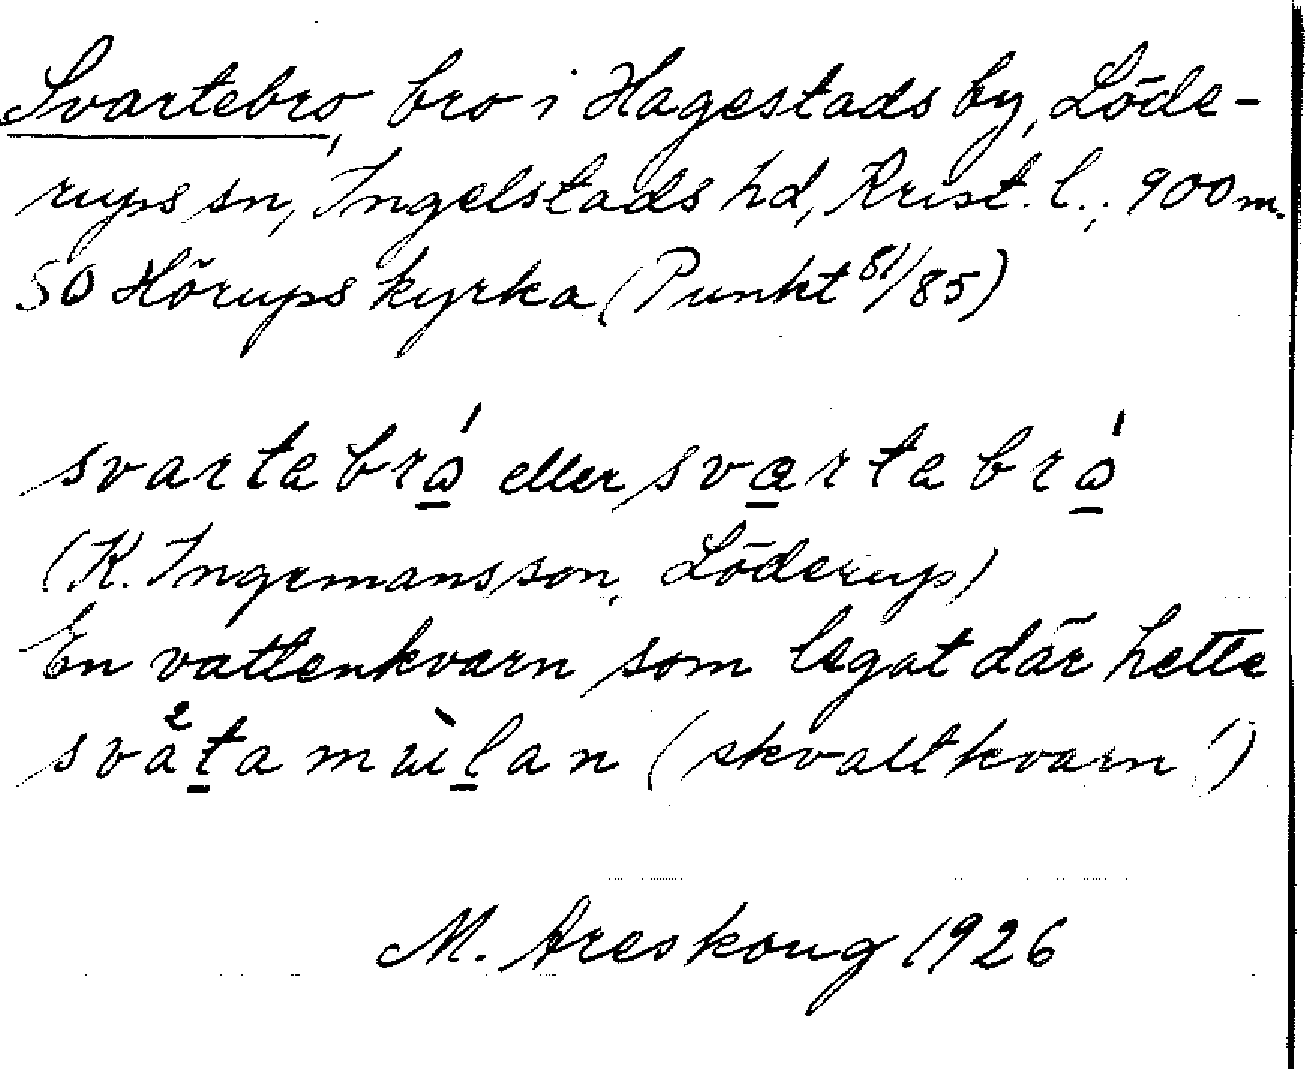 Svartebro, bro i Hagestads by, Löde-
rups sn, Ingelstads hd, Krist. l.; 900 m.
SO Hörups kyrka (Punkt 81/85)
svartebrǻ eller svartebrǻ
(K. Ingemansson, Löderup)
En vattenkvarn som legat där hette
svåtamùlan (skvaltkvarn!)
M. Areskoug 1926